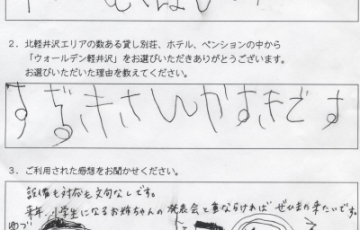 2．北軽井沢エリアの数ある貸し別荘、ホテル、ペンションの中から
「ウォールデン軽井沢」をお選びいただきありがとうございます。
お選びいただいた理由を教えてください。
すずきさんがすきです
3．ご利用された感想をお聞かせください。
設備も対応も文句なしです。
来年、小学生になるお姉ちゃんの発表会と重ならなければ ぜひまた来たいです。